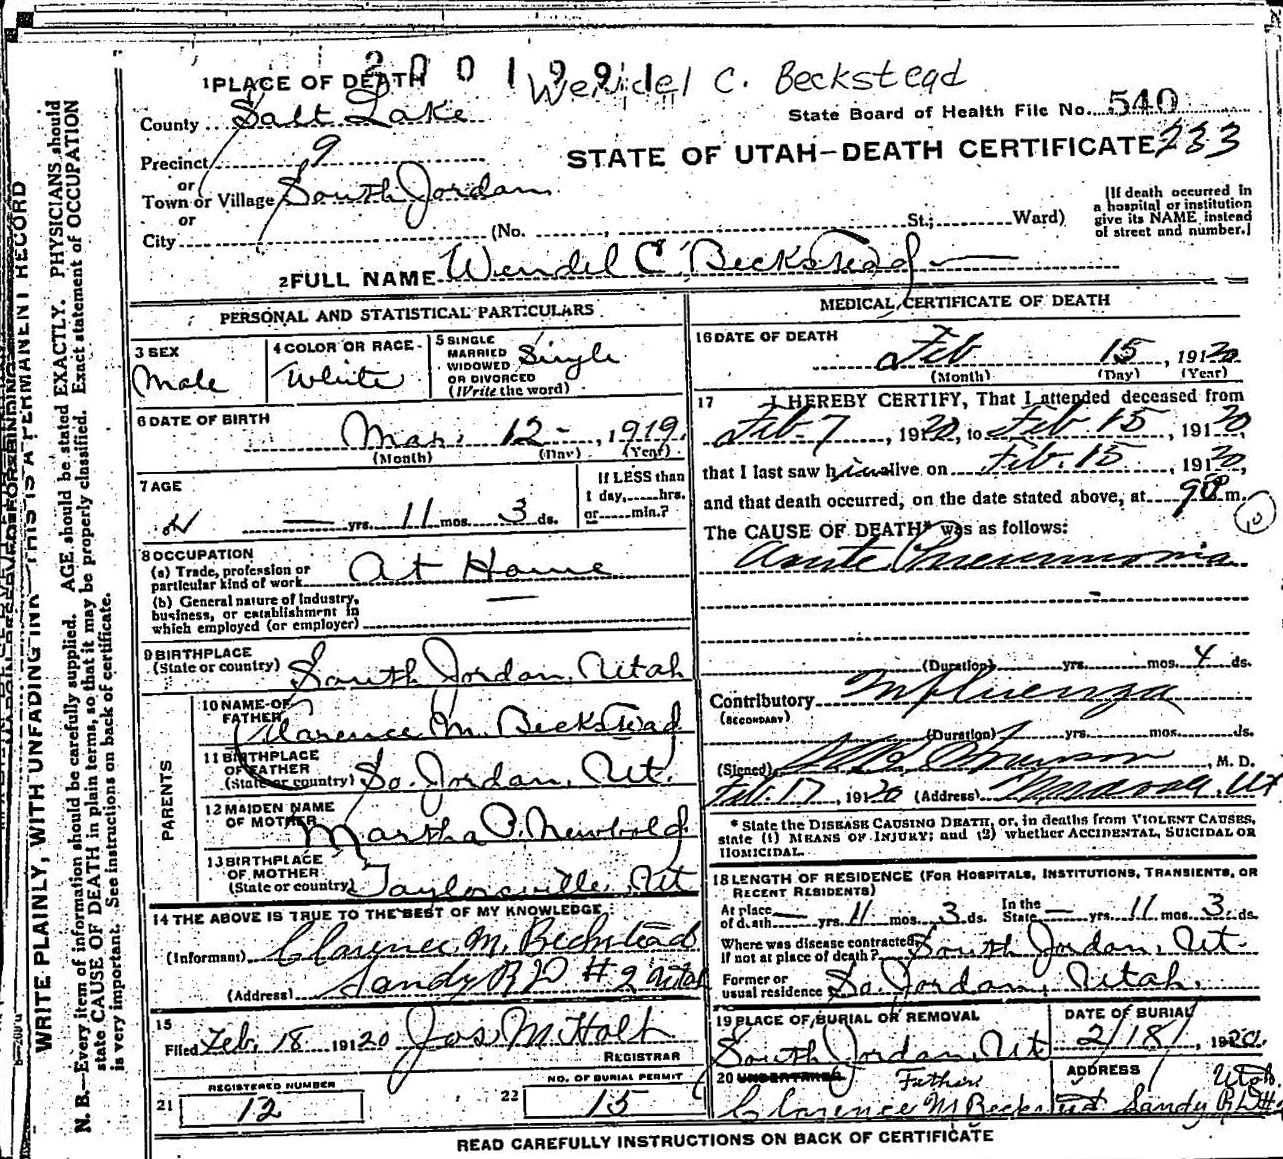 2001991 Wendel C. Beckstead
1 PLACE OF DEATH
State Board of Health File No. 540
County Salt Lake
STATE OF UTAH—DEATH CERTIFICATE 233
Precinct 9
or
Town or Village South Jordan
or
City (No. , St.; Ward)
[If death occurred in
a hospital or institution
give its NAME instead
of street and number.]
2 FULL NAME Wendel C. Beckstead
PERSONAL AND STATISTICAL PARTICULARS
3 SEX
Male
4 COLOR OR RACE
White
5 SINGLE
MARRIED
WIDOWED
OR DIVORCED
(Write the word)
Single
6 DATE OF BIRTH
Mar. 12 , 1919
(Month) (Day) (Year)
7 AGE
— yrs. 11 mos. 3 ds.
If LESS than
1 day, hrs.
or min.?
8 OCCUPATION
(a) Trade, profession or
particular kind of work At Home
(b) General nature of industry,
business, or establishment in
which employed (or employer) —
9 BIRTHPLACE
(State or country) South Jordan, Utah
PARENTS
10 NAME OF
FATHER Clarence M. Beckstead
11 BIRTHPLACE
OF FATHER
(State or country) So. Jordan, Ut.
12 MAIDEN NAME
OF MOTHER Martha P. Newbold
13 BIRTHPLACE
OF MOTHER
(State or country) Taylorsville, Ut
14 THE ABOVE IS TRUE TO THE BEST OF MY KNOWLEDGE
(Informant) Clarence M. Beckstead
(Address) Sandy R D #2 Utah
15
Filed Feb. 18 19120 Jos M Holt
REGISTRAR
REGISTERED NUMBER
21 12
NO. OF BURIAL PERMIT
22 15
MEDICAL CERTIFICATE OF DEATH
16 DATE OF DEATH
Feb 15 , 19120
(Month) (Day) (Year)
17 I HEREBY CERTIFY, That I attended deceased from
Feb. 7 , 19120, to Feb 15 , 19120,
that I last saw him alive on Feb. 15 , 19120,
and that death occurred, on the date stated above, at 9 P m.
The CAUSE OF DEATH* was as follows:
Acute Pneumonia
(Duration) yrs. mos. 4 ds.
Contributory Influenza
(SECONDARY)
(Duration) yrs. mos. ds.
(Signed) , M. D.
Feb. 17 , 19120 (Address) Ut
* State the DISEASE CAUSING DEATH, or, in deaths from VIOLENT CAUSES,
state (1) MEANS OF INJURY; and (2) whether ACCIDENTAL, SUICIDAL OR
HOMICIDAL.
18 LENGTH OF RESIDENCE (FOR HOSPITALS, INSTITUTIONS, TRANSIENTS, OR
RECENT RESIDENTS)
At place
of death — yrs. 11 mos. 3 ds.
In the
State — yrs. 11 mos. 3 ds.
Where was disease contracted,
If not at place of death? South Jordan, Ut.
Former or
usual residence So. Jordan, Utah.
19 PLACE OF BURIAL OR REMOVAL
South Jordan, Ut
DATE OF BURIAL
2/18/ , 1920.
20 UNDERTAKER Father
Clarence M Beckstead
ADDRESS Utah
Sandy R D #2
READ CAREFULLY INSTRUCTIONS ON BACK OF CERTIFICATE
WRITE PLAINLY, WITH UNFADING INK—THIS IS A PERMANENT RECORD
N. B.—Every item of information should be carefully supplied. AGE should be stated EXACTLY. PHYSICIANS should
state CAUSE OF DEATH in plain terms, so that it may be properly classified. Exact statement of OCCUPATION
is very important. See instructions on back of certificate.